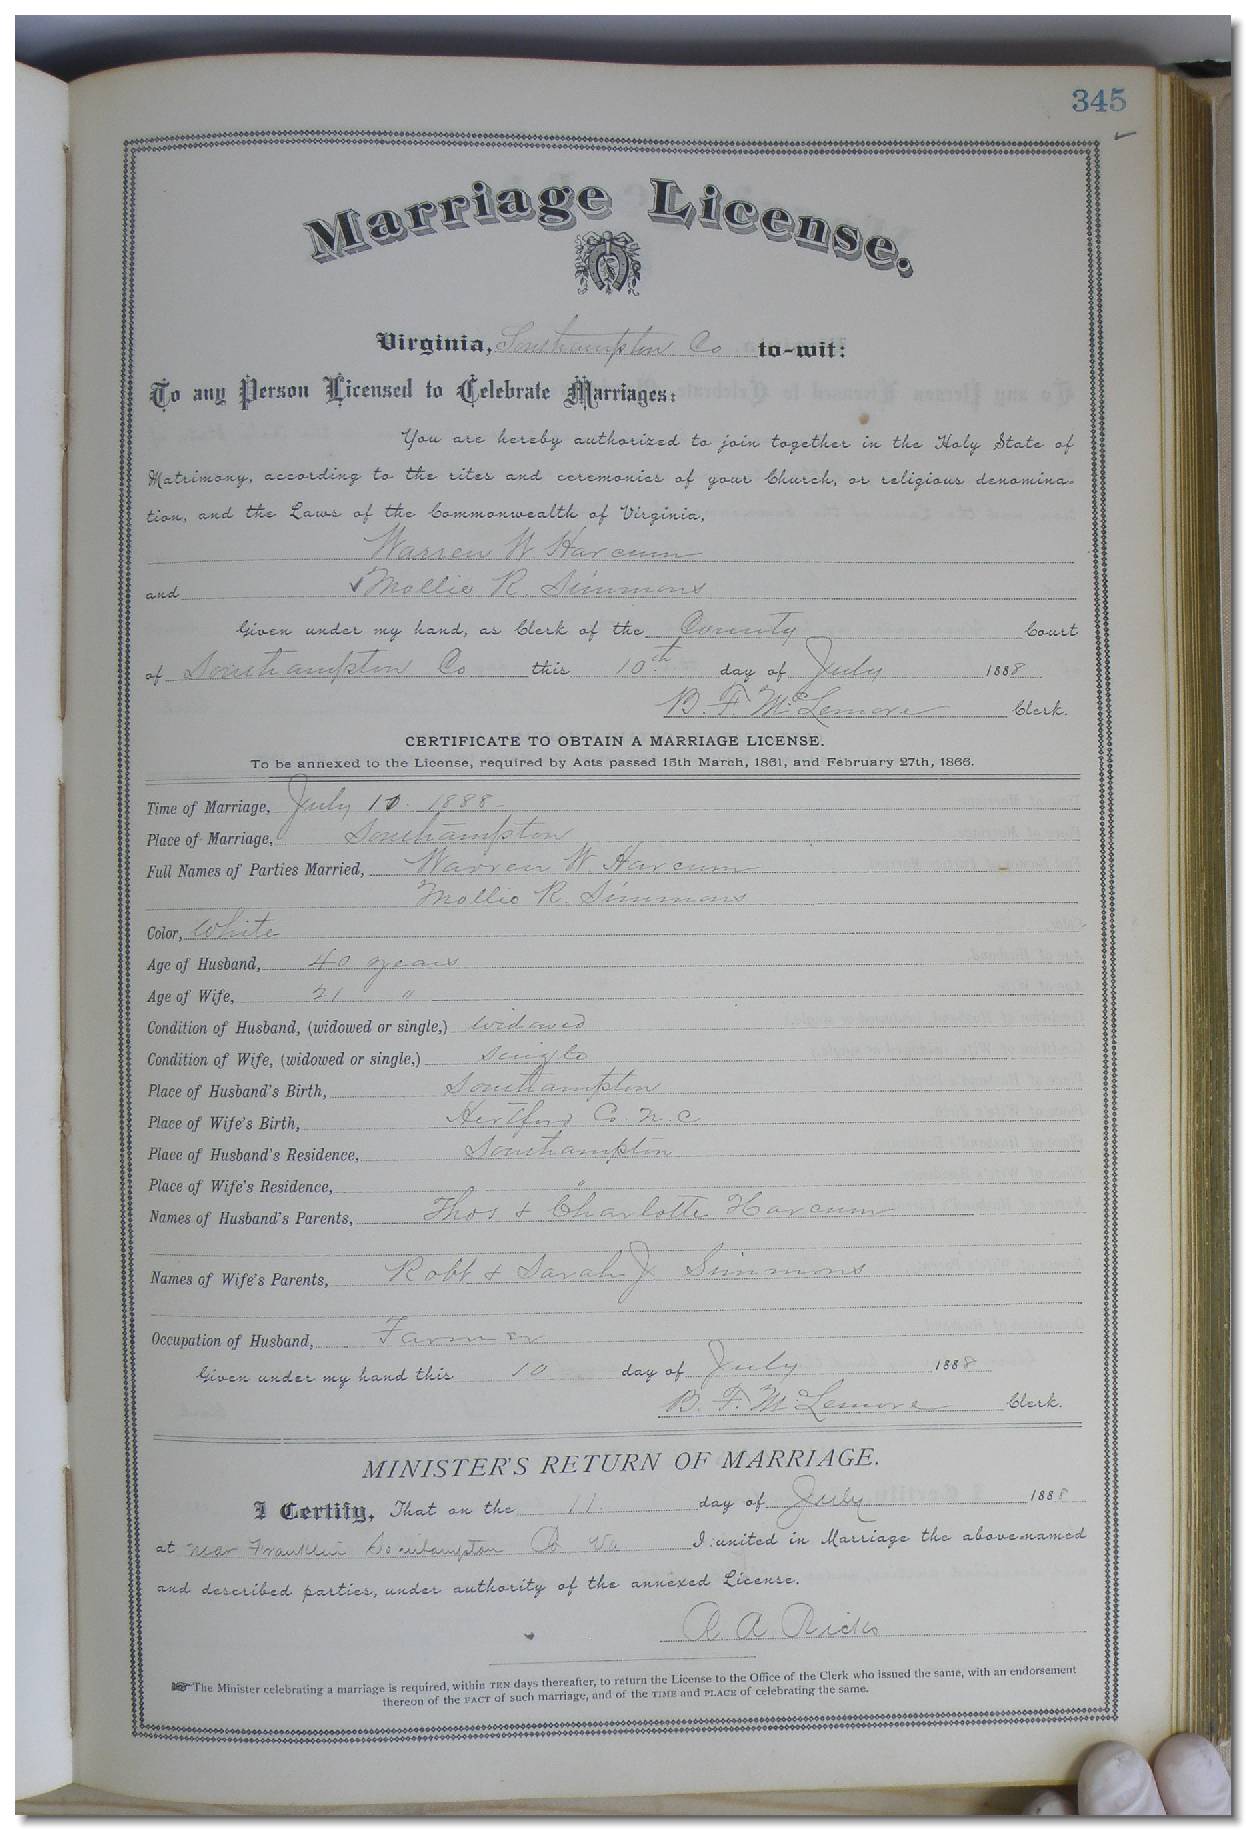 345
Marriage License.
Virginia, Southampton Co to-wit:
To any Person Licensed to Celebrate Marriages:
You are hereby authorized to join together in the Holy State of
Matrimony, according to the rites and ceremonies of your Church, or religious denomina-
tion, and the Laws of the Commonwealth of Virginia,
Warren W Harcum
and Mollie R. Simmons
Given under my hand, as Clerk of the County Court
of Southampton Co this 10th day of July 1888
B. F. McLemore Clerk.
CERTIFICATE TO OBTAIN A MARRIAGE LICENSE.
To be annexed to the License, required by Acts passed 15th March, 1861, and February 27th, 1866.
Time of Marriage, July 10. 1888
Place of Marriage, Southampton
Full Names of Parties Married, Warren W. Harcum
Mollie R. Simmons
Color, White
Age of Husband, 40 years
Age of Wife, 21 "
Condition of Husband, (widowed or single,) widowed
Condition of Wife, (widowed or single,) single
Place of Husband's Birth, Southampton
Place of Wife's Birth, Hertford Co. N.C
Place of Husband's Residence, Southampton
Place of Wife's Residence, "
Names of Husband's Parents, Thos & Charlotte Harcum
Names of Wife's Parents, Robt & Sarah J Simmons
Occupation of Husband, Farmer
Given under my hand this 10 day of July 1888
B. F. McLemore Clerk.
MINISTER'S RETURN OF MARRIAGE.
I Certify, That on the 11 day of July 1888
at near Franklin Southampton Co Va I united in Marriage the above-named
and described parties, under authority of the annexed License.
R. A. Ricks
The Minister celebrating a marriage is required, within TEN days thereafter, to return the License to the Office of the Clerk who issued the same, with an endorsement
thereon of the FACT of such marriage, and of the TIME and PLACE of celebrating the same.